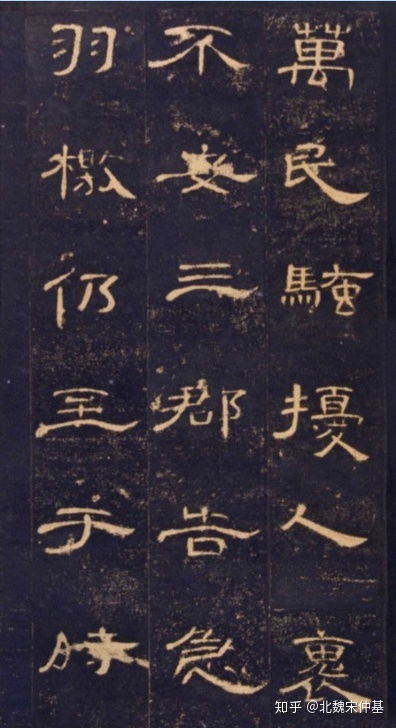 萬民騷擾人褱
不安三郡告急
羽檄仍至于時
知乎 @北魏宋仲基